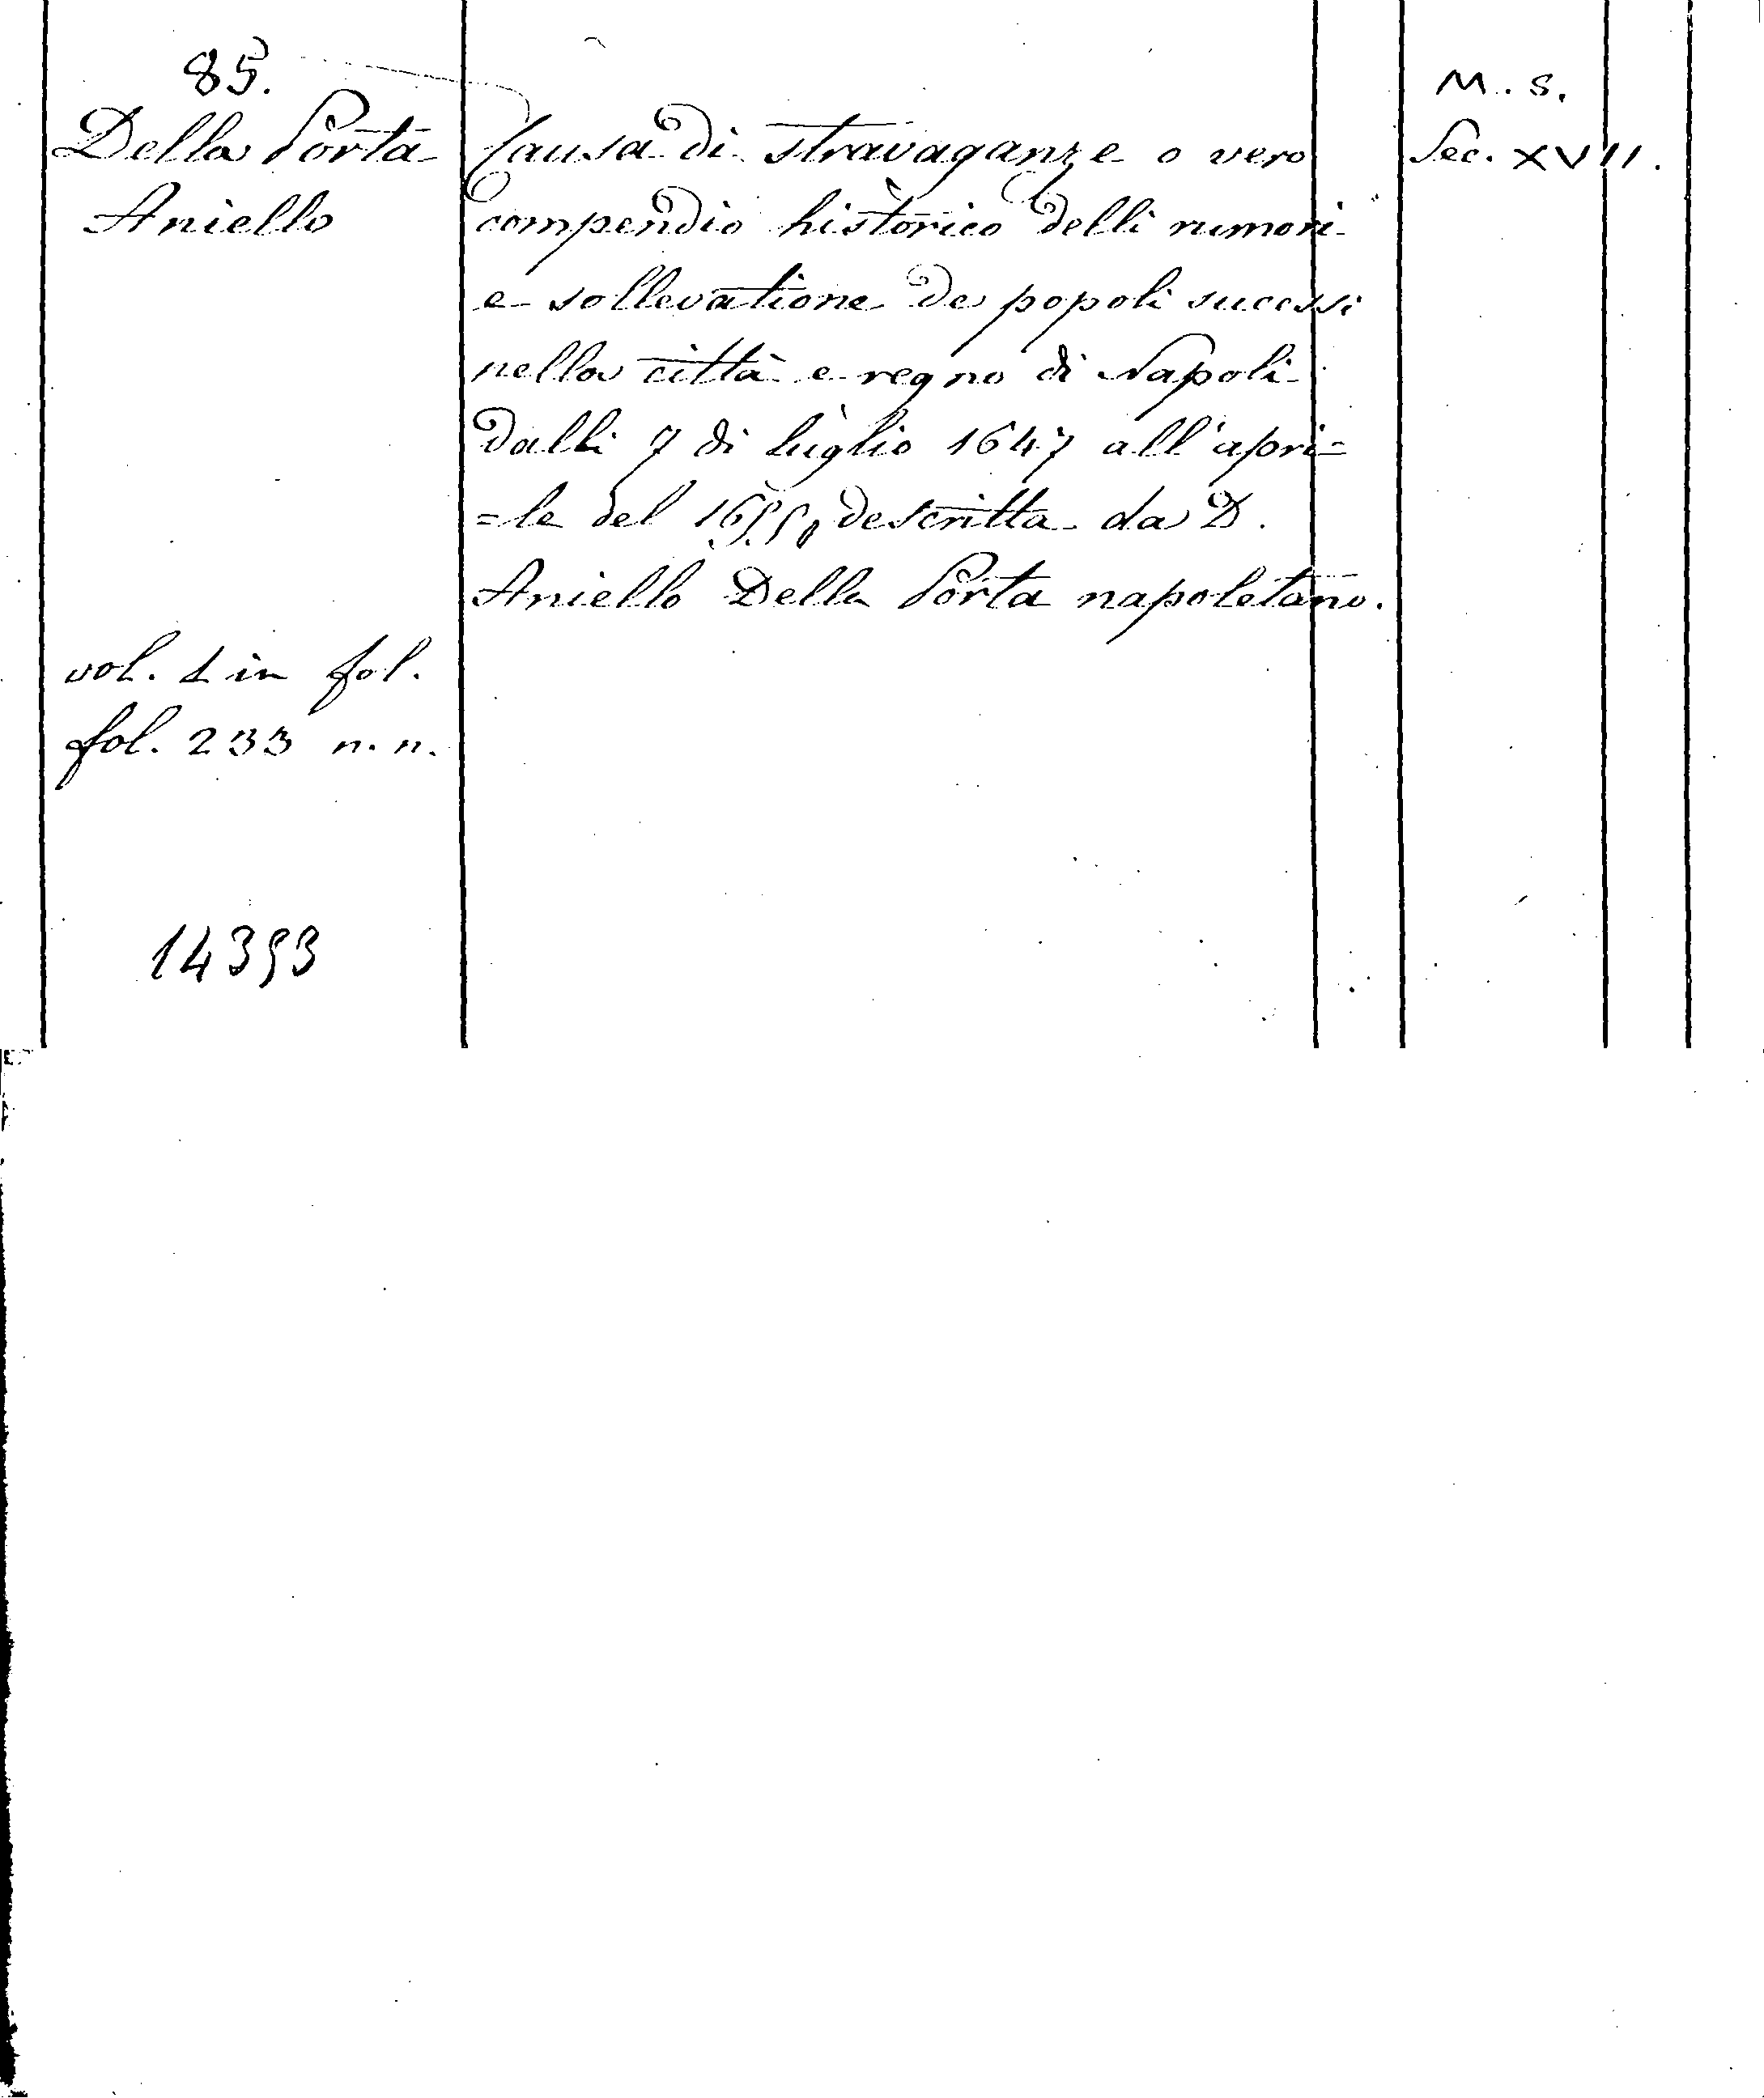 85.
Della Porta
Aniello
vol. 1 in fol.
fol. 233 n. n.
14393
Causa di stravaganze o vero
compendio historico delli rumori
e sollevatione de popoli sucessi
nella città e regno di Napoli
dalli 7 di luglio 1647 all'apri=
=le del 1655, descritta da D.
Aniello Della Porta napoletano.
M. S.
Sec. XVII.